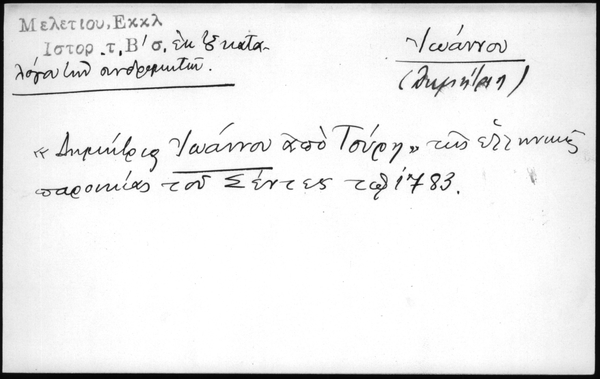 Μελετίου, Εκκλ
Ιστορ. τ. Β' σ. ἐκ τοῦ κατα-
λόγου τῶν συνδρομητῶν.
Ἰωάννου
(Δημήτρη)
«Δημήτρις Ἰωάννου ἀπὸ Τούρη» τῆς ἑλληνικῆς
παροικίας τοῦ Σέντες τῷ 1783.